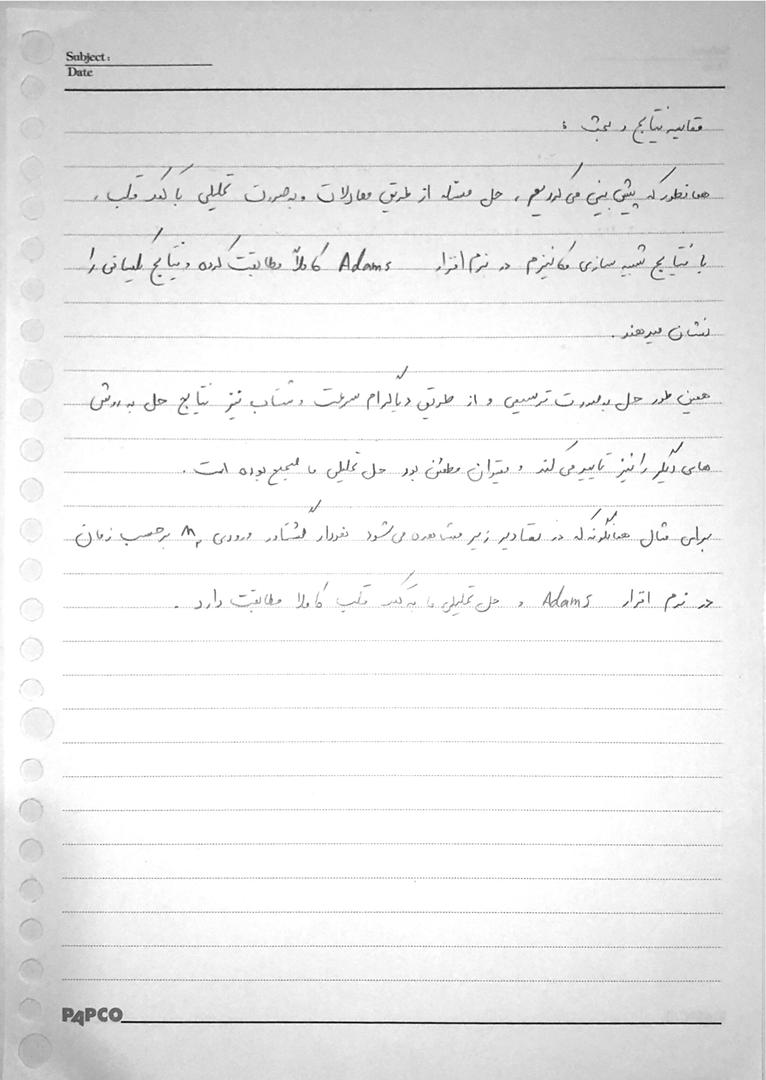 Subject:
Date
مقایسه نتایج و بحث :
همانطور که پیش بینی می کردیم ، حل مسئله از طریق معادلات و بصورت تحلیلی با کد متلب ،
با نتایج شبیه سازی مکانیزم در نرم افزار Adams کاملاً مطابقت کرده و نتایج یکسانی را
نشان میدهند .
همین طور حل بصورت ترسیمی و از طریق دیاگرام سرعت و شتاب نیز نتایج حل به روش
های دیگر را نیز تایید می کند و میتوان مطمئن بود حل تحلیلی ما صحیح بوده است .
برای مثال همانگونه که در تصاویر زیر مشاهده می شود نمودار گشتاور ورودی برحسب زمان
در نرم افزار Adams و حل تحلیلی ما به کد متلب کاملا مطابقت دارد .
PAPCO